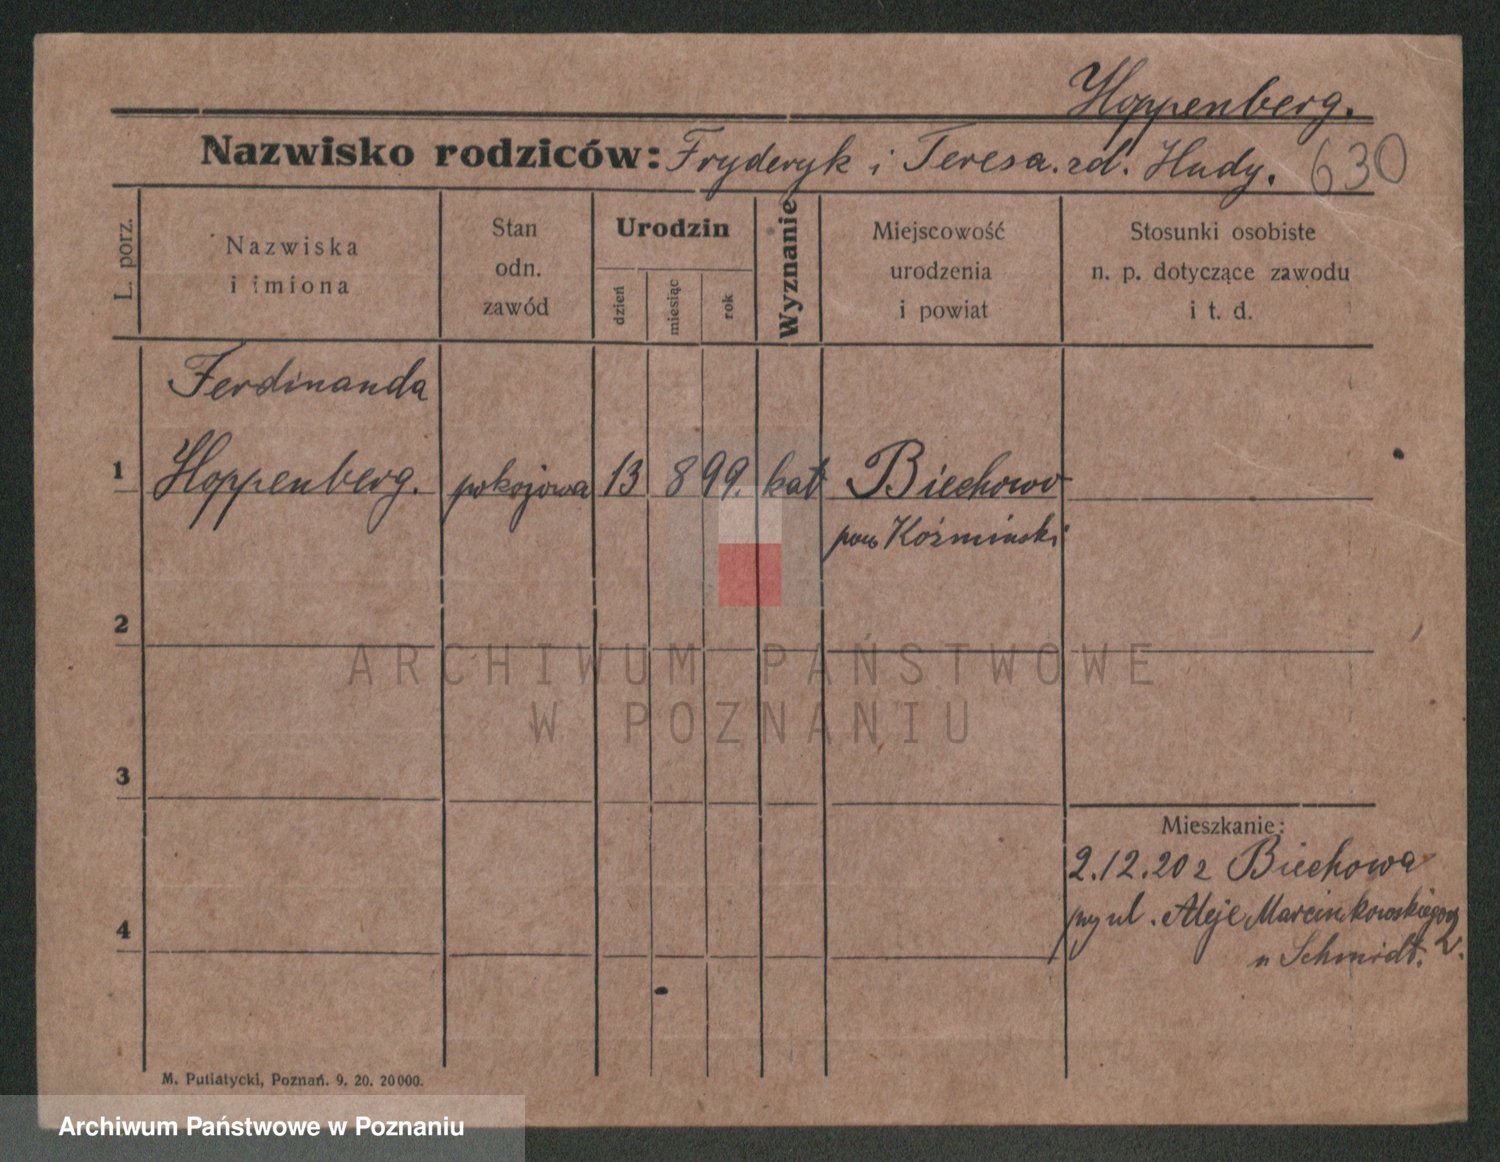 Hoppenberg.
Nazwisko rodziców: Fryderyk i Teresa. zd. Hudy. 630
L. porz.
Nazwiska
i imiona
Stan
odn.
zawód
Urodzin
dzień
miesiąc
rok
Wyznanie
Miejscowość
urodzenia
i powiat
Stosunki osobiste
n. p. dotyczące zawodu
i t. d.
Ferdinanda
1 Hoppenberg. pokojowa 13 8 99. kat Biechowo
pow Koźmiński
2
ARCHIWUM PAŃSTWOWE
W POZNANIU
3
Mieszkanie:
2.12.20 z Biechowa
ul. Aleje Marcinkowskiego
4
u Schmidt.
M. Putiatycki, Poznań. 9. 20. 20000.
Archiwum Państwowe w Poznaniu